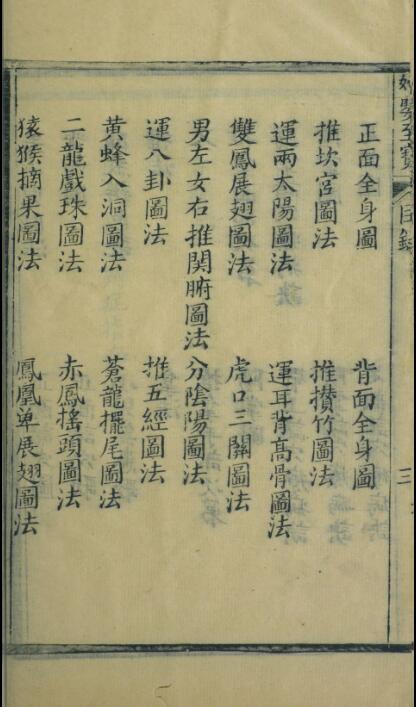 正面全身圖 背面全身圖
推坎宮圖法 推攅竹圖法
運兩太陽圖法 運耳背高骨圖法
雙鳳展翅圖法 虎口三關圖法
男左女右推関腑圖法 分陰陽圖法
運八卦圖法 推五經圖法
黄蜂入洞圖法 蒼龍擺尾圖法
二龍戲珠圖法 赤鳳搖頭圖法
猿猴摘果圖法 鳳凰單展翅圖法
目錄
三